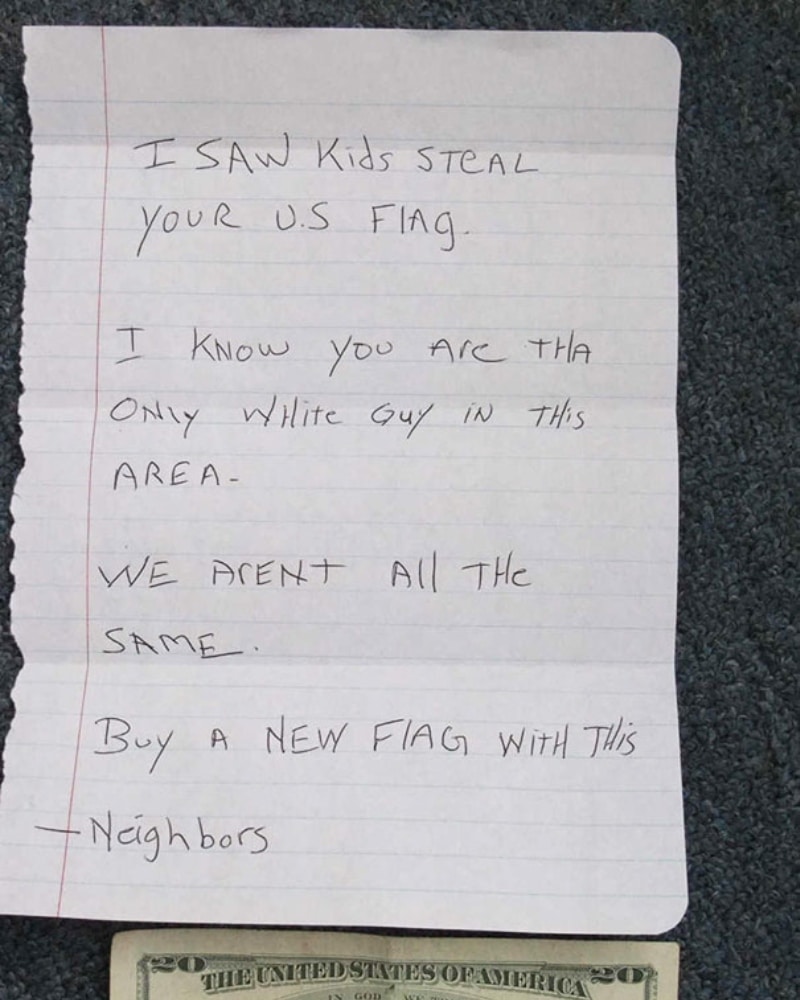 I SAW Kids STEAL
YOUR U.S FlAg.
I KNOW YOU ArE tHA
ONlY WHite GuY iN THis
AREA-
WE ArENt All THe
SAME.
Buy A NEW FlAG WitH THis
-Neighbors
20 THE UNITED STATES OF AMERICA 20
IN GOD WE